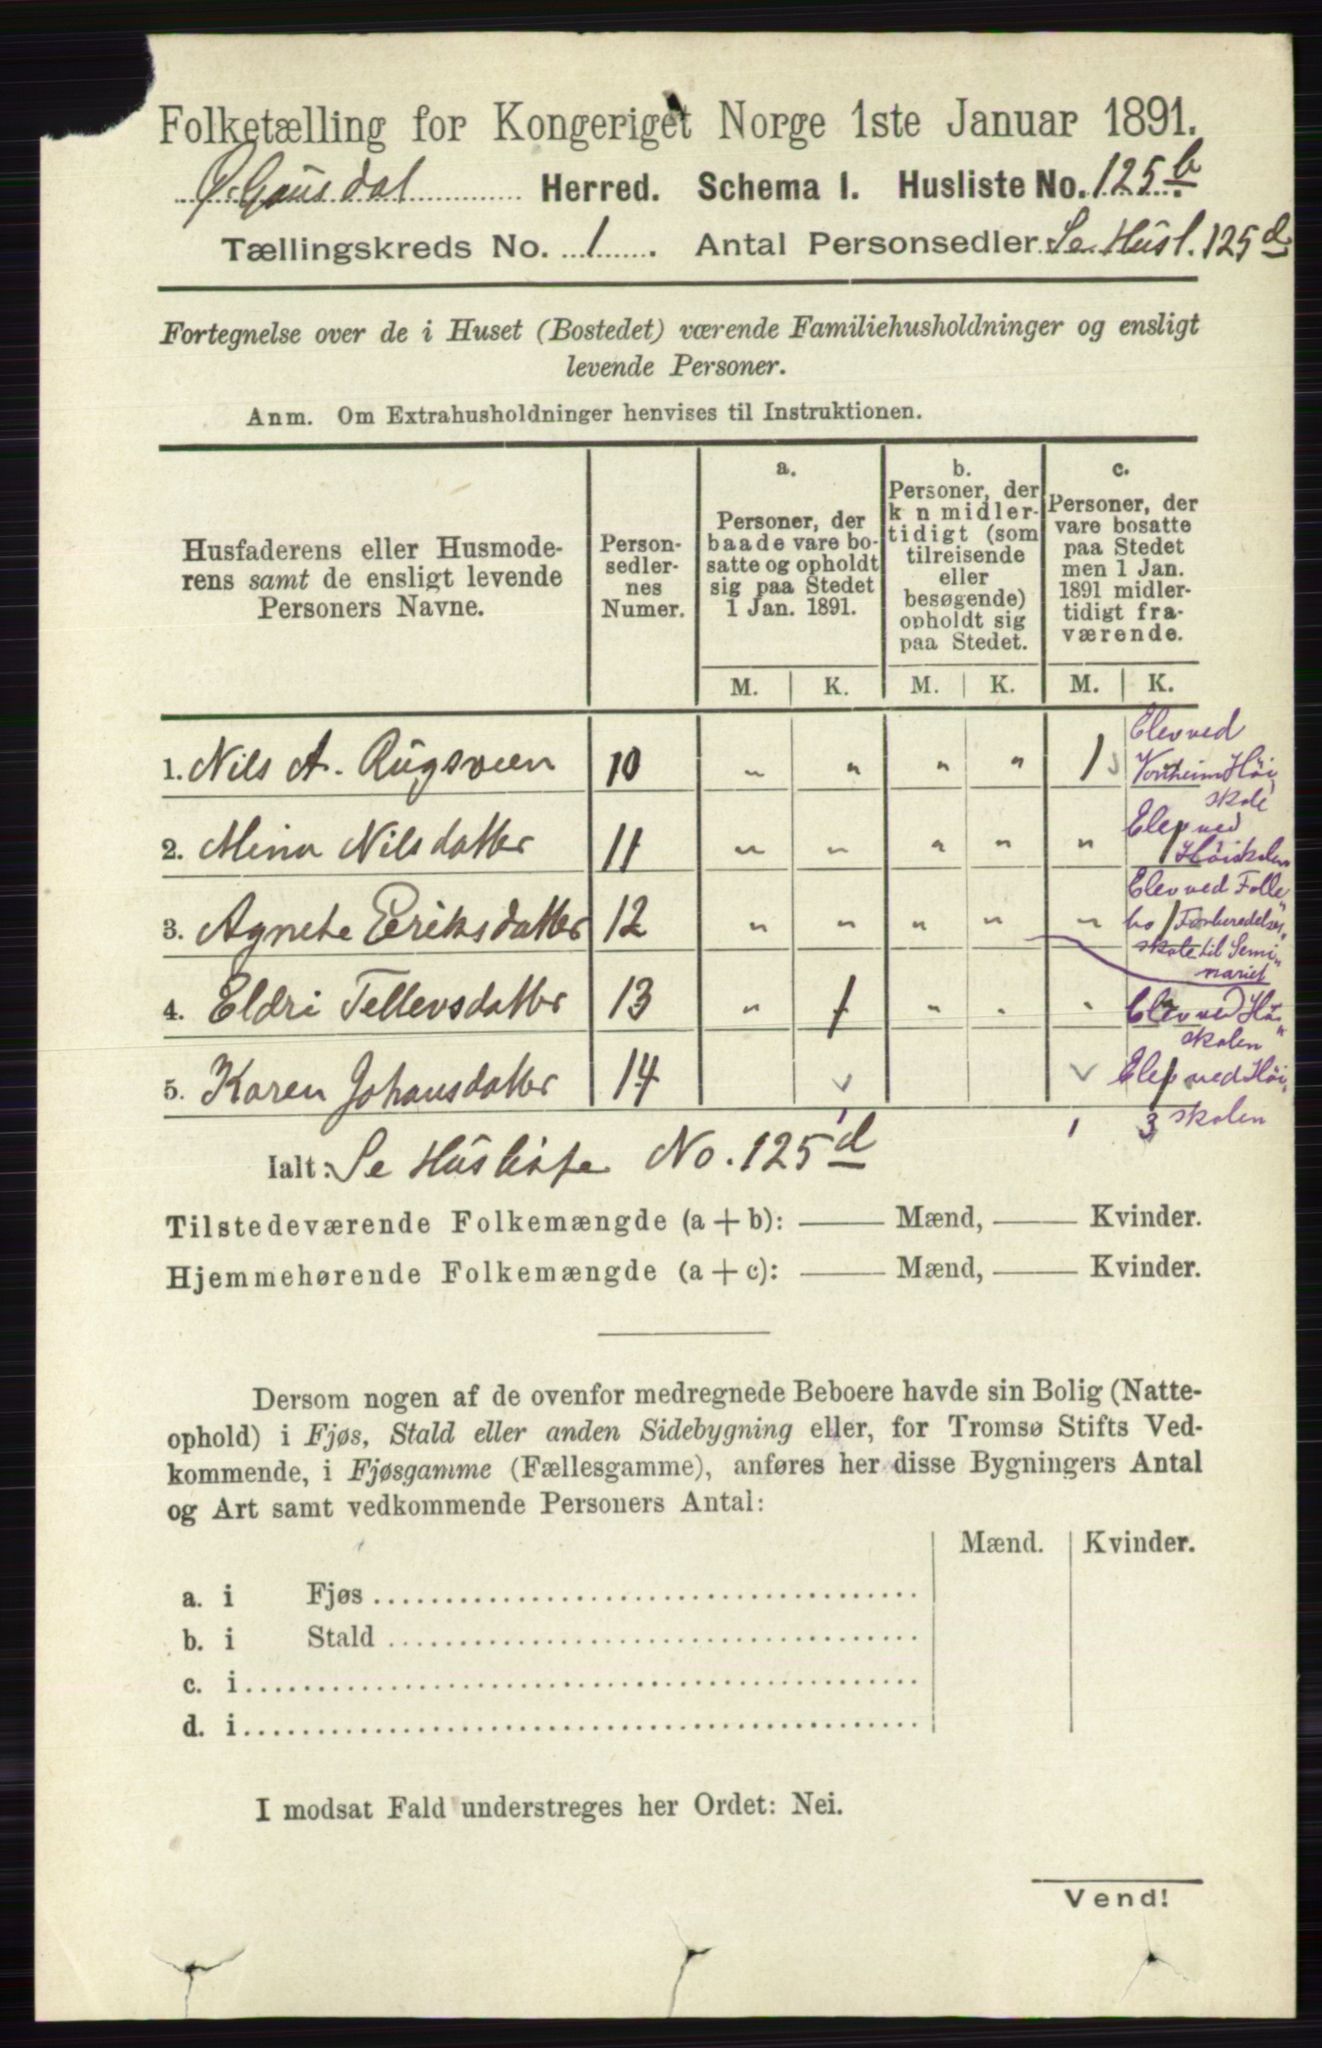 Folketælling for Kongeriget Norge 1ste Januar 1891.
Ø. Gausdal Herred. Schema 1. Husliste No. 125 b
Tællingskreds No. 1. Antal Personsedler Se Husl. 125 d
Fortegnelse over de i Huset (Bostedet) værende Familiehusholdninger og ensligt
levende Personer.
Anm. Om Extrahusholdninger henvises til Instruktionen.
Husfaderens eller Husmode-
rens samt de ensligt levende
Personers Navne.
Person-
sedler-
nes
Numer.
a.
Personer, der
baade vare bo-
satte og opholdt
sig paa Stedet
1 Jan. 1891.
b.
Personer, der
k n midler-
tidigt (som
tilreisende
eller
besøgende)
opholdt sig
paa Stedet.
c.
Personer, der
vare bosatte
paa Stedet
men 1 Jan.
1891 midler-
tidigt fra-
værende.
M. K. M. K. M. K.
1. Nils A. Rugsveen 10 " " " " 1 Elev ved
Høi
skole
2. Mina Nilsdatter 11 " " " " " 1 Elev ved
Høiskolen
3. Agnete Eriksdatter 12 " " " " " 1 Elev ved Folle
bo Forberedelses
skole til Semi
nariet
4. Eldri Tellevsdatter 13 " 1 " " " " Elev ved Høi
skolen
5. Karen Johansdatter 14 1 Elev ved Høi
skolen
1 1 3
Ialt: Se Husliste No. 125 d
Tilstedeværende Folkemængde (a + b): Mænd, Kvinder.
Hjemmehørende Folkemængde (a + c): Mænd, Kvinder.
Dersom nogen af de ovenfor medregnede Beboere havde sin Bolig (Natte-
ophold) i Fjøs, Stald eller anden Sidebygning eller, for Tromsø Stifts Ved-
kommende, i Fjøsgamme (Fællesgamme), anføres her disse Bygningers Antal
og Art samt vedkommende Personers Antal:
Mænd. Kvinder.
a. i Fjøs
b. i Stald
c. i
d. i
I modsat Fald understreges her Ordet: Nei.
Vend!